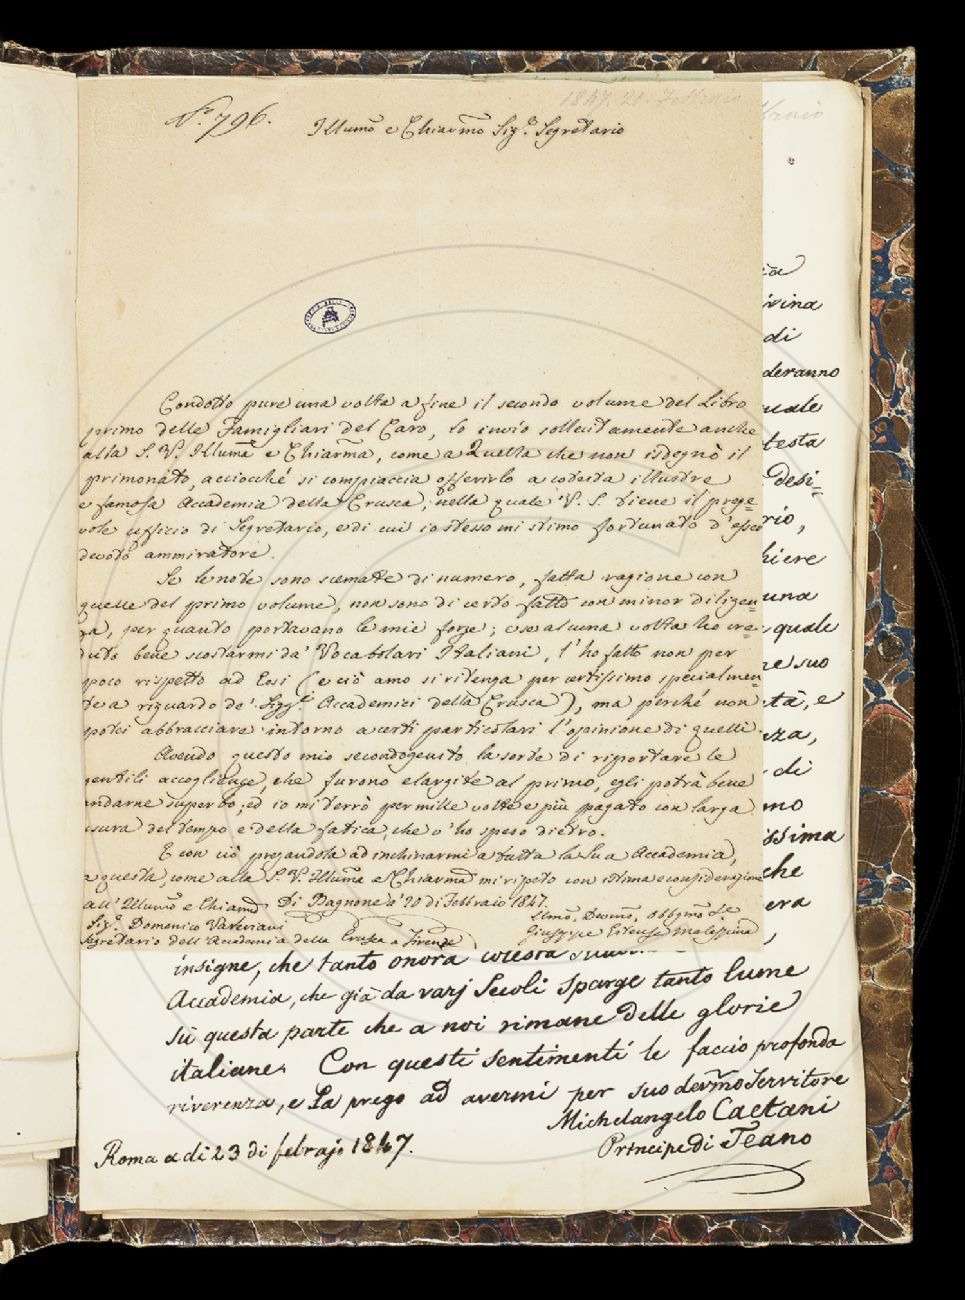 1847. 20. Febbraio
braio
N.° 796.
Illumo e Chiarmo Sig.e Segretario
Condotto pure una volta a fine il secondo volume del Libro
primo delle Famigliari del Caro, lo invio sollecitamente anche
alla S. V. Illuma e Chiarma, come a Quella che non isdegnò il
primonato, acciocchè si compiaccia offerirlo a codesta illustre
e famosa Accademia della Crusca, nella quale V. S. tiene il prege-
vole uffizio di Segretario, e di cui io stesso mi stimo fortunato d'esser
devoto ammiratore.
Se le note sono scemate di numero, fatta ragione con
quelle del primo volume, non sono di certo fatte con minor diligen-
za, per quanto portavano le mie forze; e se alcuna volta ho cre-
duto bene scostarmi da' Vocabolari Italiani, l'ho fatto non per
poco rispetto ad Essi (e ciò amo si ritenga per certissimo specialmen-
te a riguardo de' Sigg.i Accademici della Crusca), ma perché non
potei abbracciare intorno a certi particolari l'opinione di quelli.
Avendo questo mio secondogenito la sorte di riportare le
gentili accoglienze, che furono elargite al primo, egli potrà bene
andarne superbo, ed io mi terrò per mille volte e più pagato con larga
usura del tempo e della fatica, che v'ho speso dietro.
E con ciò pregandola ad inchinarmi a tutta la Sua Accademia,
a questa, come alla S. V. Illuma e Chiarma mi ripeto con istima e considerazione
All' Illumo e Chiarmo Di Bagnone a' 20 di Febbraio 1847.
Sig.e Domenico Valeriani
Segretario dell' Accademia della Crusca a Firenze
Ilmo, Devmo, Obbgmo Se
Giuseppe Estense Malespina
ivina
di
deranno
uale
testa
Desi=
rio,
hiere
una
quale
ne suo
tà, e
nza,
di
mo
issima
che
era
insigne, che tanto onora cotesta
Accademia, che già da varj Secoli sparge tanto lume
sù questa parte che a noi rimane delle glorie
italiane. Con questi sentimenti le faccio profonda
riverenza, e La prego ad avermi per suo devmo Servitore
Michelangelo Caetani
Principe di Teano
Roma a di 23 di febrajo 1847.